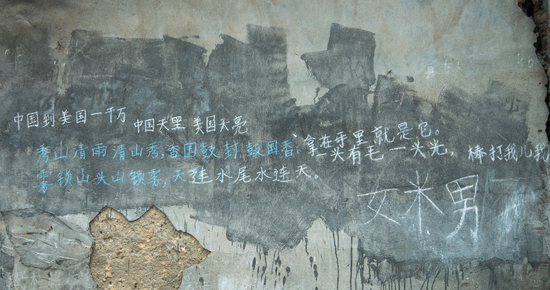 中国到美国一千万
中国天里 美国天亮
秀山清雨清山秀,
雾锁山头山锁雾,天连水尾水连天。
、拿在手里就是它。
一头有毛一头光,棒打我儿我
女米男